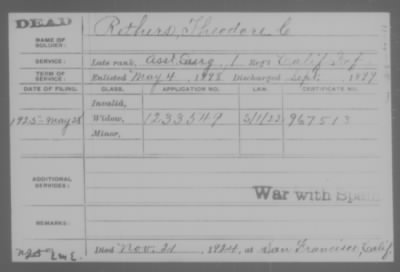 DEAD
NAME OF SOLDIER: Rethers, Theodore C
SERVICE: Late rank, Asst. Surg, 1 Reg't Calif Inf
TERM OF SERVICE: Enlisted May 4, 1898 Discharged Sept. , 1899
DATE OF FILING. CLASS. APPLICATION NO. LAW. CERTIFICATE NO.
Invalid,
1925-May 28 Widow, 1233549 5/1/22 967513
Minor,
ADDITIONAL SERVICES:
War with Spain
REMARKS:
Died Nov. 21, 1924, at San Francisco, Calif.